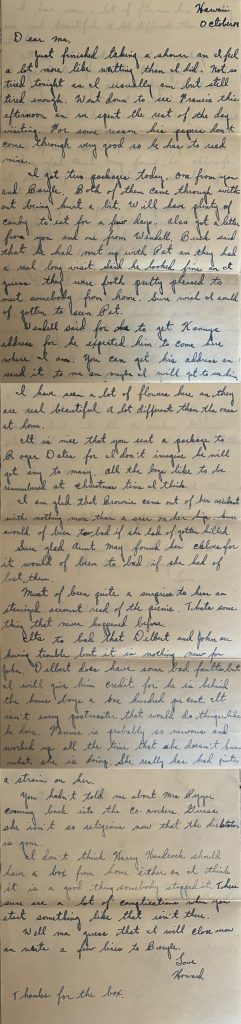 Hawaii
October
Dear Ma,
Just finished taking a shower an I feel
a lot more like writting than I did. Not so
tired tonight as I usually am but still
tired enough. Went down to see Francis this
afternoon an we spent the rest of the day
visiting. For some reason his papers don't
come through very good so he has to read
mine.
I got two packages today. One from you
and Beryle. Both of them came through with
out being hurt a bit. Will have plenty of
candy to eat for a few days. Also got a letter
from you and one from Wendell Buck said
that he had met up with Pat an they had
a real long visit. Said he looked fine an I
guess they were both pretty pleased to
met somebody from home. Sure wish I could
of gotten to seen Pat.
Wendell said for to get
address for he expected him to come here
where I am. You can get his address an
send it to me an maybe I will get to see him
I have seen a lot of flowers here an they
are real beautiful. A lot different than the ones
at home.
It is nice that you sent a package to
Roger Oates for I don't imagine he will
get any to many. All the boys like to be
remembered at Christmas time I think.
I am glad that Brownie came out of her accident
with nothing more than a scar on her hip. Sure
would of been too bad if she had of gotten killed.
Sure glad Aunt May found her calves for
it would of been to bad if she had of
lost them.
Must of been quite a surprise to hear an
account read of the picnic. Thats some-
thing that never happened before.
Its to bad that Delbert and John are
having trouble but it is nothing new for
John. Delbert does have some bad faults but
I will give him credit for he is behind
the home boys a one hundred per cent. It
isn't every postmaster that would do things like
he does. Fannie is probably so nervous and
worked up all the time that she doesn't know
what she is doing. She really has had quite
a strain on her.
You hadn't told me about Mrs
coming back into the Co-workers. Guess
she isn't so religious now that the dictator
is gone.
I don't think Harry should
have a box from home either an I think
it is a good thing somebody stopped it. There
sure are a lot of complications when you
start something like that isn't there.
Well Ma guess that I will close now
an write a few lines to Beryle.
Love
Howard
Thanks for the box.